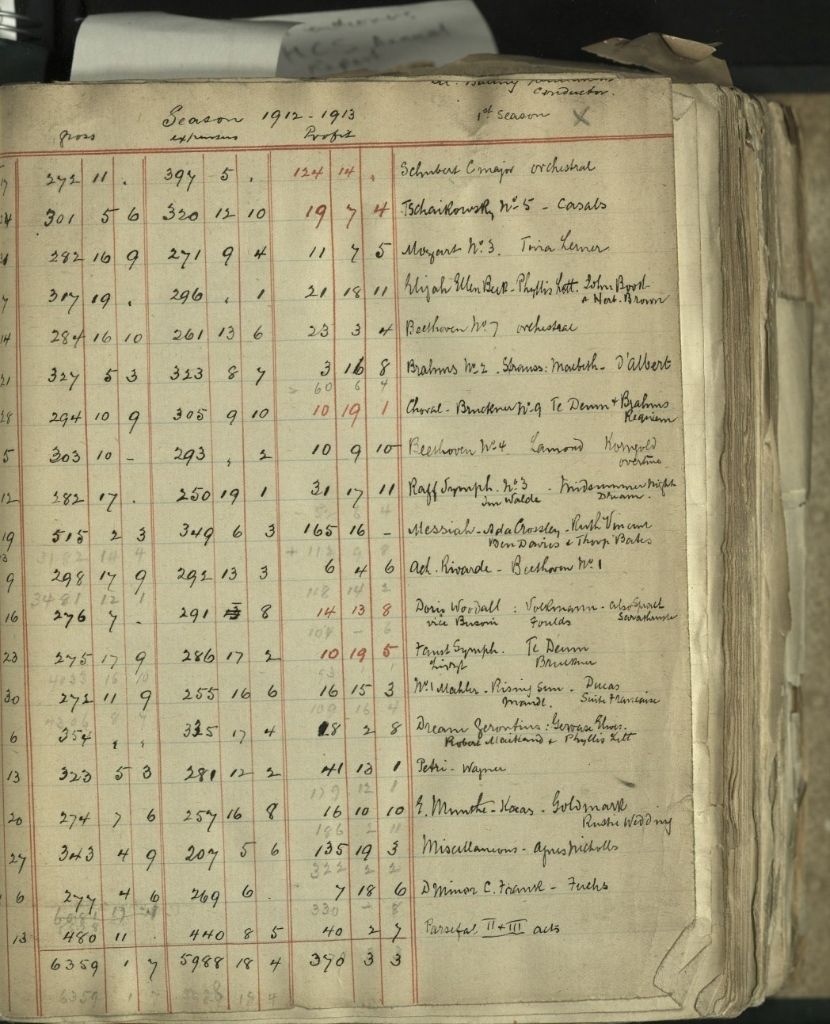 Conductor.
Season 1912-1913 1st Season X
gross expenses Profit
272 11 . 397 5 . 124 14 . Schubert C major orchestral
24 301 5 6 320 12 10 19 7 4 Tschaikowsky No. 5 - Casals
282 16 9 271 9 4 11 7 5 Mozart No. 3. Tina Lerner
7 317 19 . 296 . 1 21 18 11 Elijah Ellen Beck - Phyllis Lett. John Booth
& Hert. Brown
14 284 16 10 261 13 6 23 3 4 Beethoven No. 7 orchestral
21 327 5 3 323 8 7 3 16 8 Brahms No. 2. Strauss: Macbeth - D'Albert
60 6 4
28 294 10 9 305 9 10 10 19 1 Choral - Bruckner No. 9 Te Deum & Brahms
Requiem
5 303 10 - 293 , 2 10 9 10 Beethoven No. 4 Lamond Korngold
overture
12 282 17 . 250 19 1 31 17 11 Raff Symph. No. 3 - Midsummer Night
Im Walde Dream.
19 515 2 3 349 6 3 165 16 - Messiah - Ada Crossley - Ruth Vincent
Ben Davies & Thorp Bates
+ 112 9 8
9 298 17 9 292 13 3 6 4 6 Ach. Rivarde - Beethoven No. 1
3481 12 1 118 14 2
16 276 7 . 291 8 14 13 8 Doris Woodall : Volkmann - also Sprach
vice Busoni Foulds Sarathustra
23 275 17 9 286 17 2 10 19 5 Faust Symph. Te Deum
Liszt Bruckner
30 272 11 9 255 16 6 16 15 3 No. 1 Mahler - Rising Sun - Ducas
Mandl. Suite Francaise
109 16 4
6 354 , , 335 17 4 18 2 8 Dream Gerontius: Gervase Elwes.
Robert Maitland & Phyllis Lett
13 323 5 3 281 12 2 41 13 1 Petri - Wagner
20 274 7 6 257 16 8 16 10 10 E. Munthe-Kaas - Goldmark
Rustic Wedding
186 2 11
27 343 4 9 207 5 6 135 19 3 Miscellaneous - Agnes Nicholls
322 2 2
6 277 4 6 269 6 . 7 18 6 D Minor C. Frank - Fuchs
330 - 8
13 480 11 . 440 8 5 40 2 7 Parsefal II + III acts
6359 1 7 5988 18 4 370 3 3
6359 1 7 5988 18 4